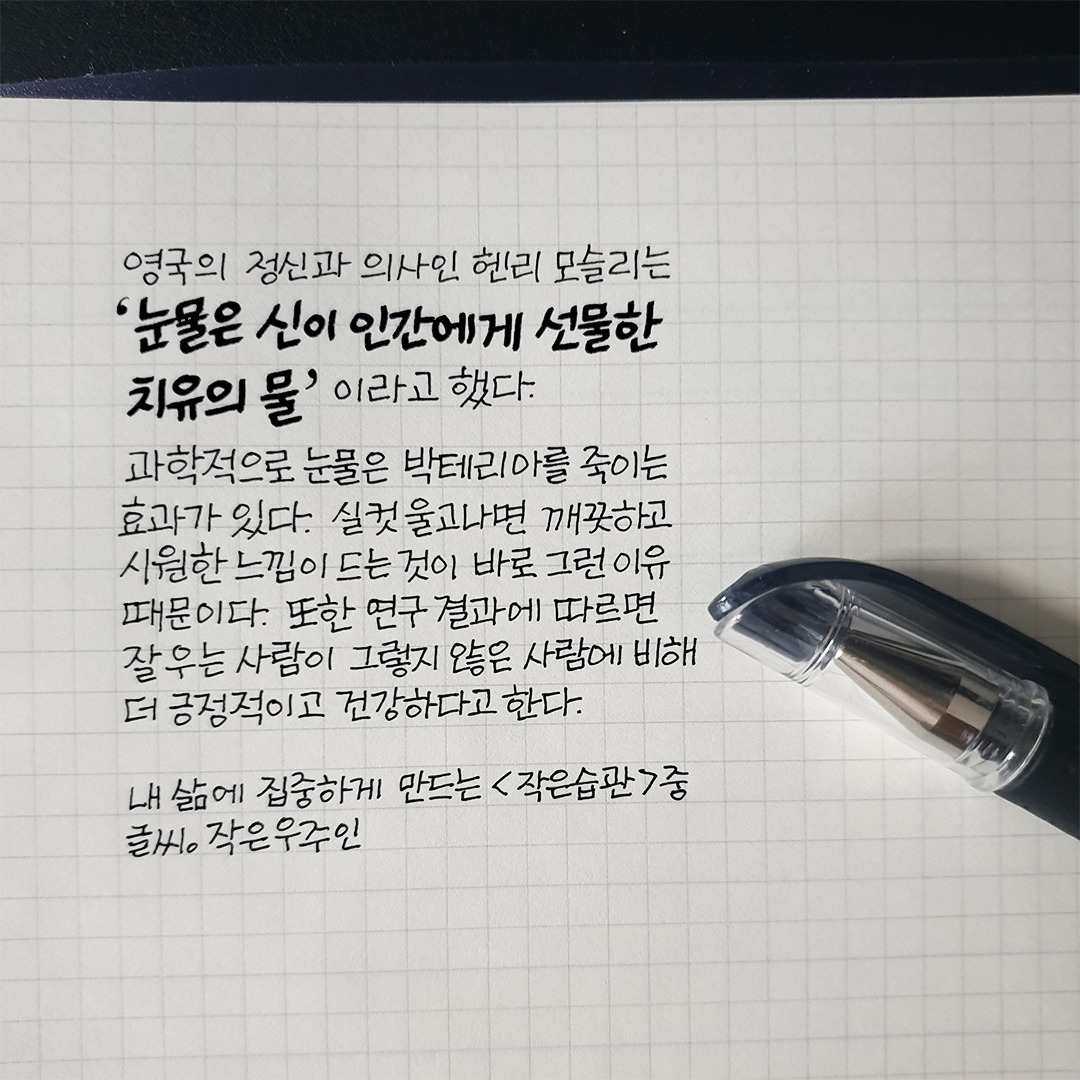 영국의 정신과 의사인 헨리 모슬리는
‘눈물은 신이 인간에게 선물한
치유의 물’ 이라고 했다.
과학적으로 눈물은 박테리아를 죽이는
효과가 있다. 실컷 울고나면 깨끗하고
시원한 느낌이 드는 것이 바로 그런 이유
때문이다. 또한 연구 결과에 따르면
잘 우는 사람이 그렇지 않은 사람에 비해
더 긍정적이고 건강하다고 한다.
내 삶에 집중하게 만드는 <작은습관>중
글씨。작은우주인